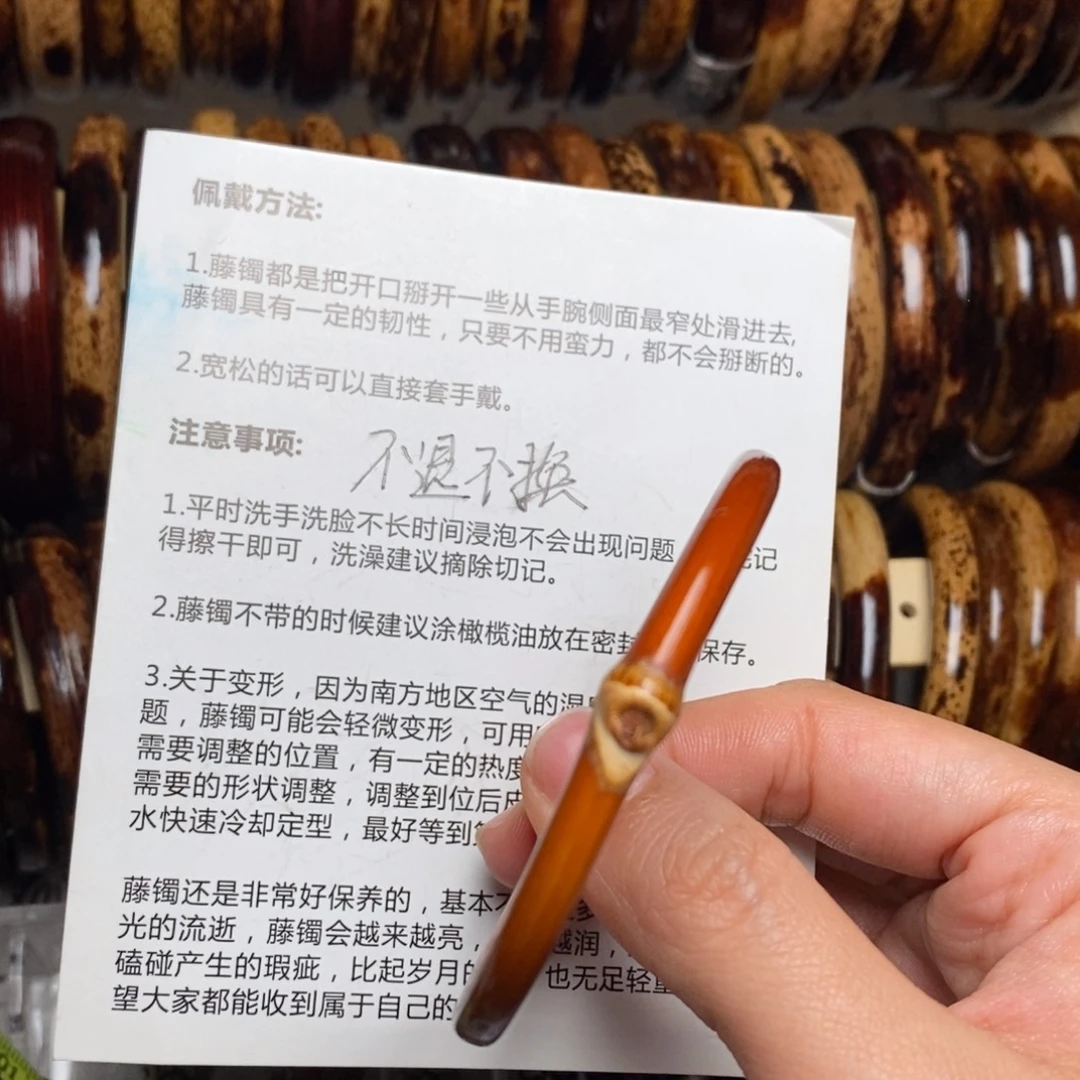 佩戴方法:
1.藤镯都是把开口掰开一些从手腕侧面最窄处滑进去,
藤镯具有一定的韧性，只要不用蛮力，都不会掰断的。
2.宽松的话可以直接套手戴。
注意事项:
不退不换
1.平时洗手洗脸不长时间浸泡不会出现问题
记
得擦干即可，洗澡建议摘除切记。
2.藤镯不带的时候建议涂橄榄油放在密封
保存。
3.关于变形，因为南方地区空气的湿
题，藤镯可能会轻微变形，可用
需要调整的位置，有一定的热度
需要的形状调整，调整到位后
水快速冷却定型，最好等到
藤镯还是非常好保养的，基本不
光的流逝，藤镯会越来越亮，
越润，
磕碰产生的瑕疵，比起岁月的
也无足轻重
望大家都能收到属于自己的